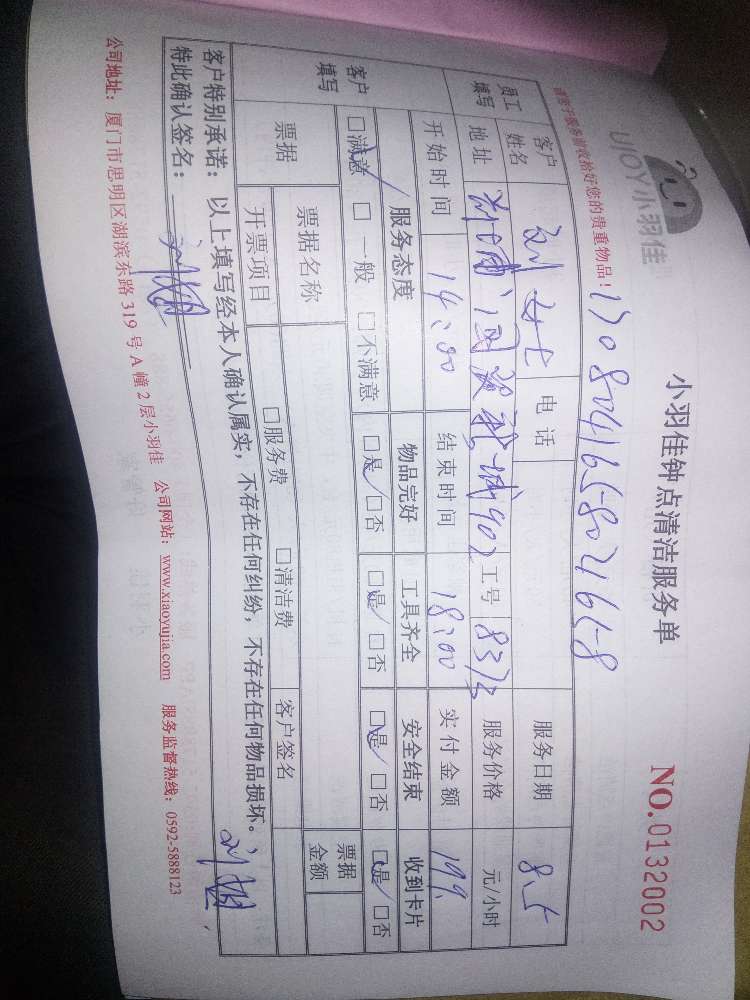 UJOY小羽佳
小羽佳钟点清洁服务单
NO.0132002
请您于服务前收拾好您的贵重物品!
员工填写
客户姓名 刘女士 电话 服务日期 8.5
地址 工号 服务价格 元/小时
开始时间 14:00 结束时间 18:00 实付金额 199
客户填写
服务态度 物品完好 工具齐全 安全结束 收到卡片
☑满意 □一般 □不满意 ☑是 □否 ☑是 □否 ☑是 □否 ☑是 □否
票据 票据名称 票据金额
开票项目 □服务费 □清洁费 客户签名
客户特别承诺:以上填写经本人确认属实,不存在任何纠纷,不存在任何物品损坏。
特此确认签名:
公司地址:厦门市思明区湖滨东路319号A幢2层小羽佳 公司网站:www.xiaoyujia.com 服务监督热线:0592-5888123